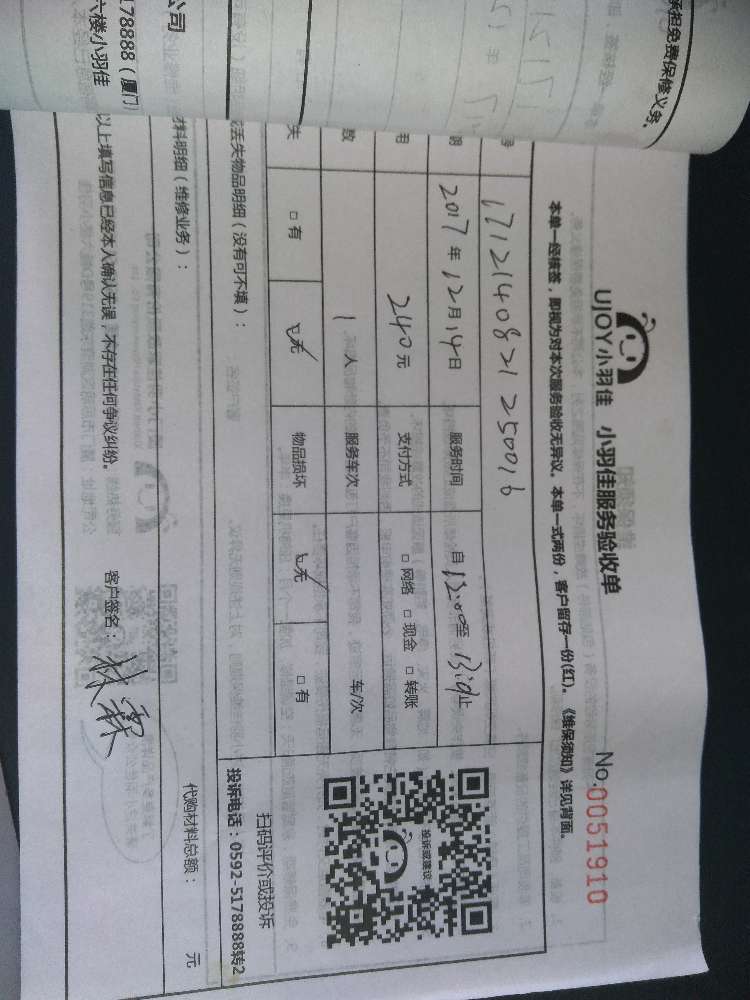 承担免费保修义务。
UJOY小羽佳 小羽佳服务验收单
No.0051910
本单一经核签，即视为对本次服务验收无异议。本单一式两份，客户留存一份(红)。《维保须知》详见背面。
1712140821250016
2017年12月14日 服务时间 自12:00至 止
240元 支付方式 □网络 □现金 □转账
数 1人 服务车次 车/次
失 □有 □无 物品损坏 □无 □有
投诉或建议
扫码评价或投诉
投诉电话：0592-5178888转2
或丢失物品明细（没有可不填）：
材料明细（维修业务）：
代购材料总额： 元
公司
5178888（厦门
六楼小羽佳
以上填写信息已经本人确认无误，不存在任何争议纠纷。
客户签名：林霖